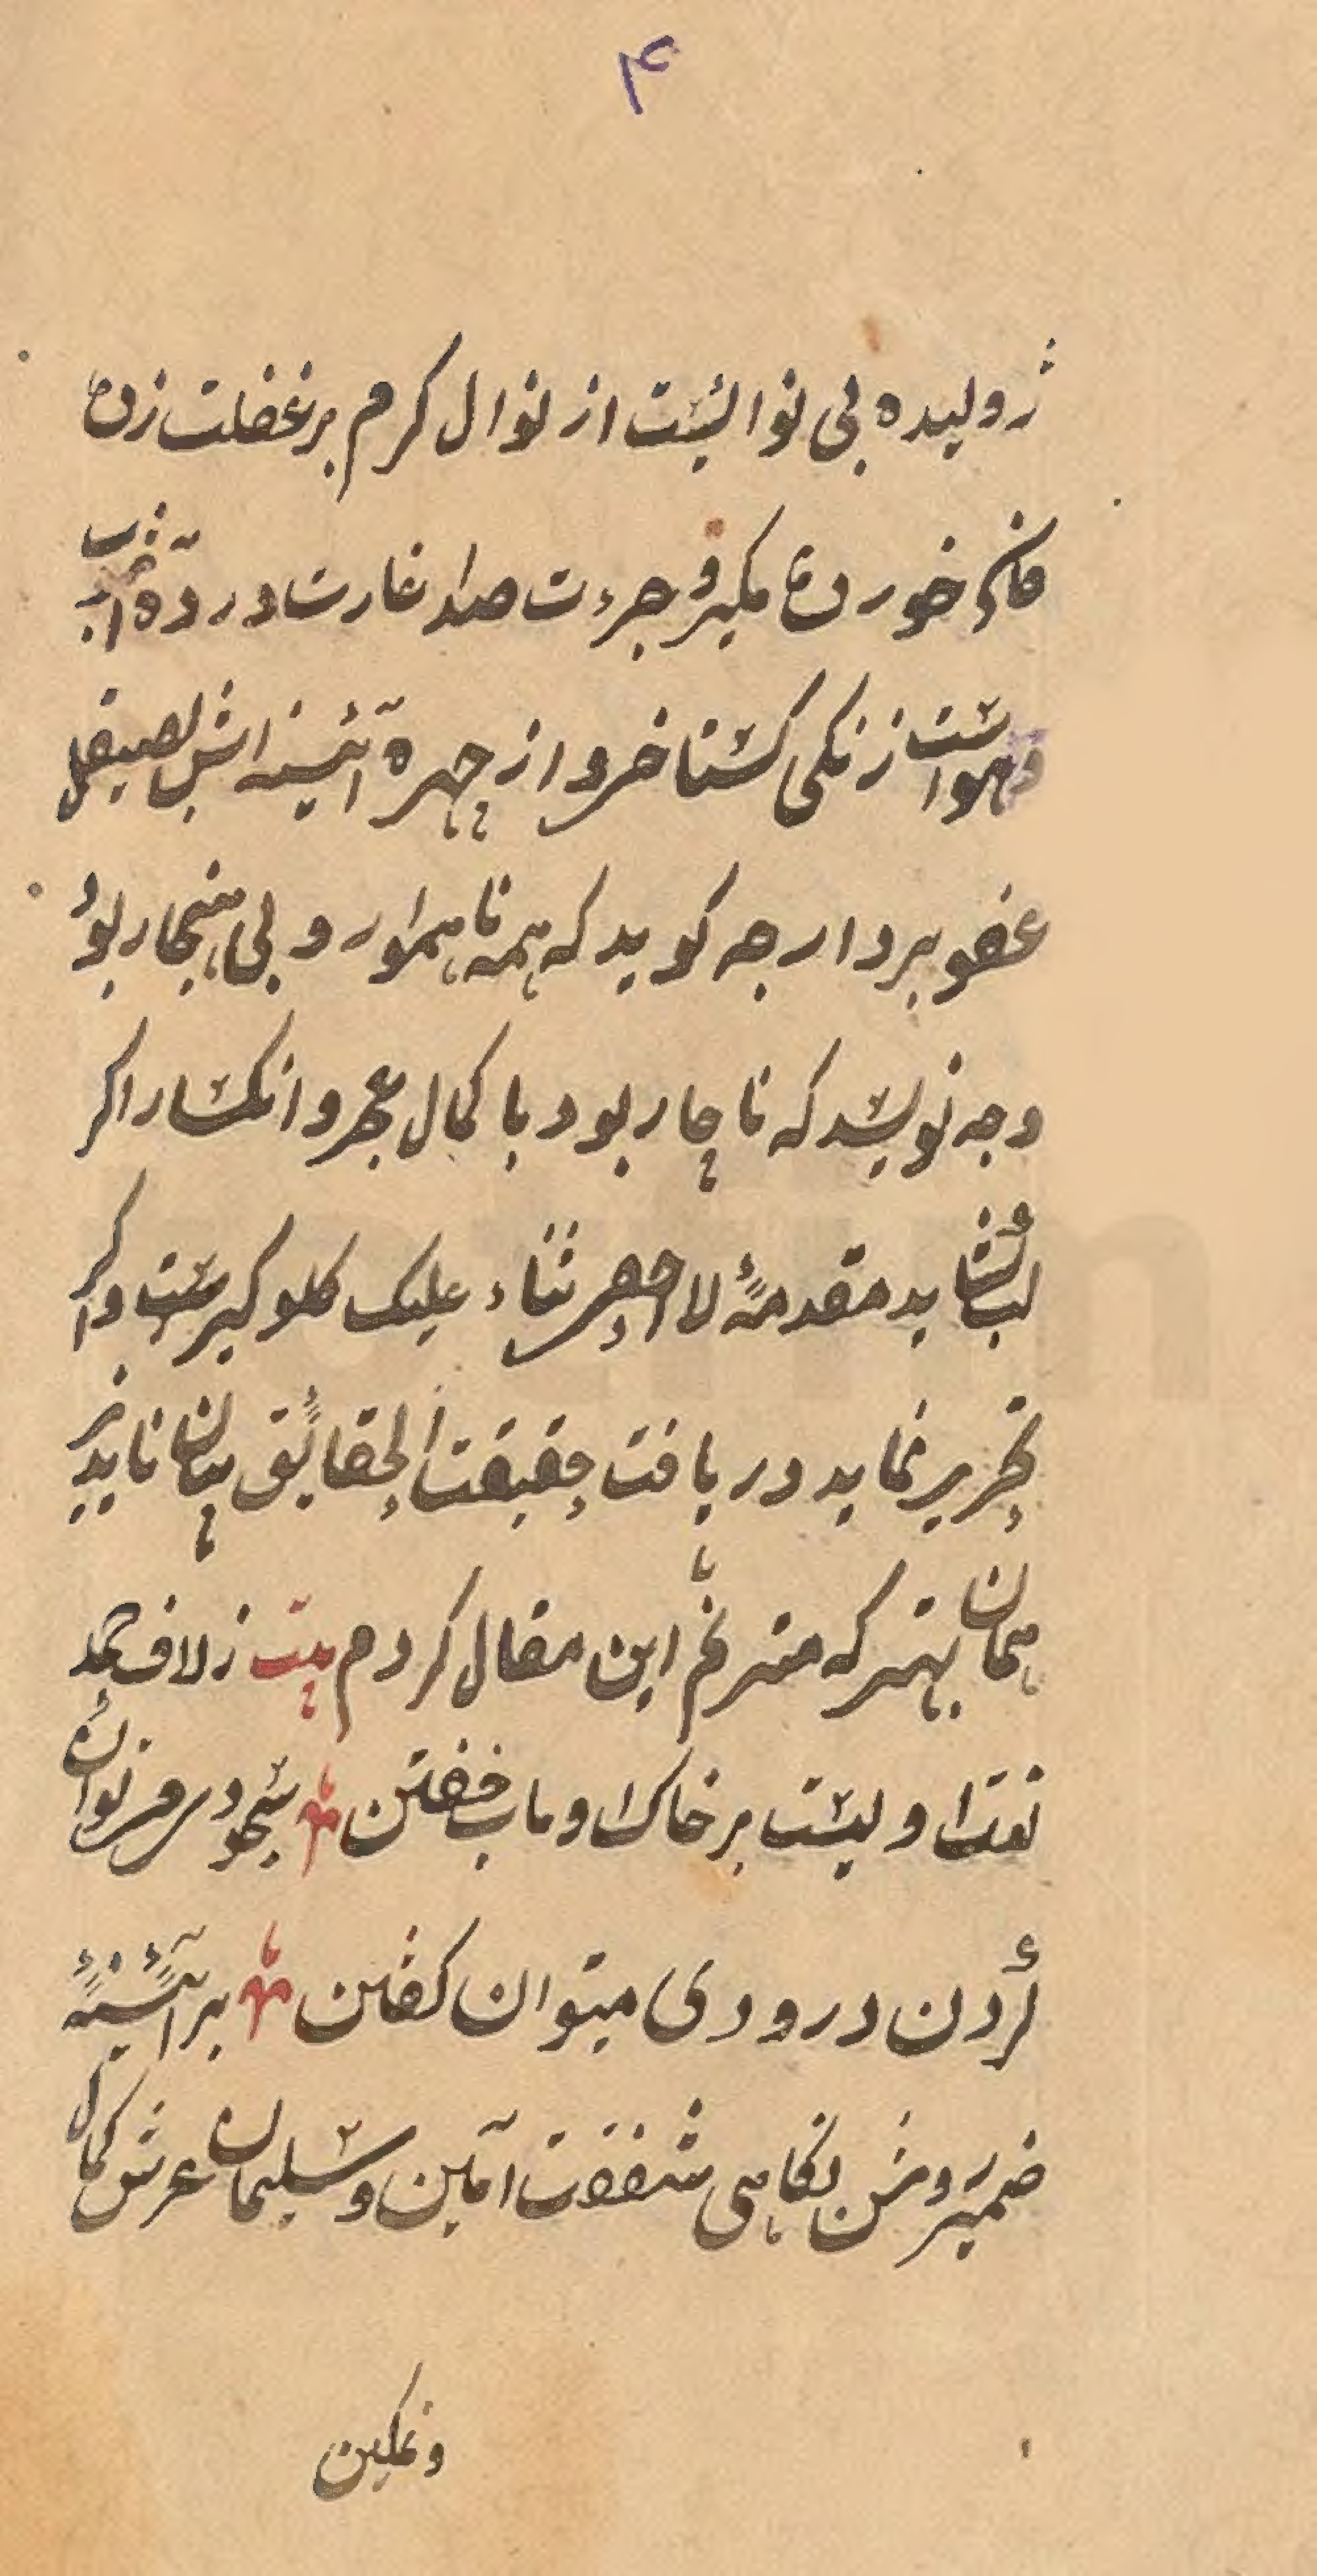 ۴
ژولیده بی نوائیست از نوال کرم بر غفلت زدۀ
خوردۀ جرءت صد غارت در دۀ
وهواست زنکی کشتا خرو از چهره آئینه اش بصیقل
عفو بردار چه کوید که همه ناهموار و بی هنجار بود
و چه نویسد که ناچار بود با کمال عجز و انکسار اکر
لب کشاید مقدمۀ لا احصی ثناء علیک کلو کیرست و اکر
تحریر نماید دریافت حقیقت الحقائق بیان ناپذیر
همان بهتر که مترنم باین مقال کردم بیت ز لاف حمد
نعت اولیست بر خاک ادب خفتن سجودی میتوان
کردن درودی میتوان کفتن بر آئینۀ
ضمیر روشن نکاهی شفقت آئین و سلیمان عرش کمال
و نمکین